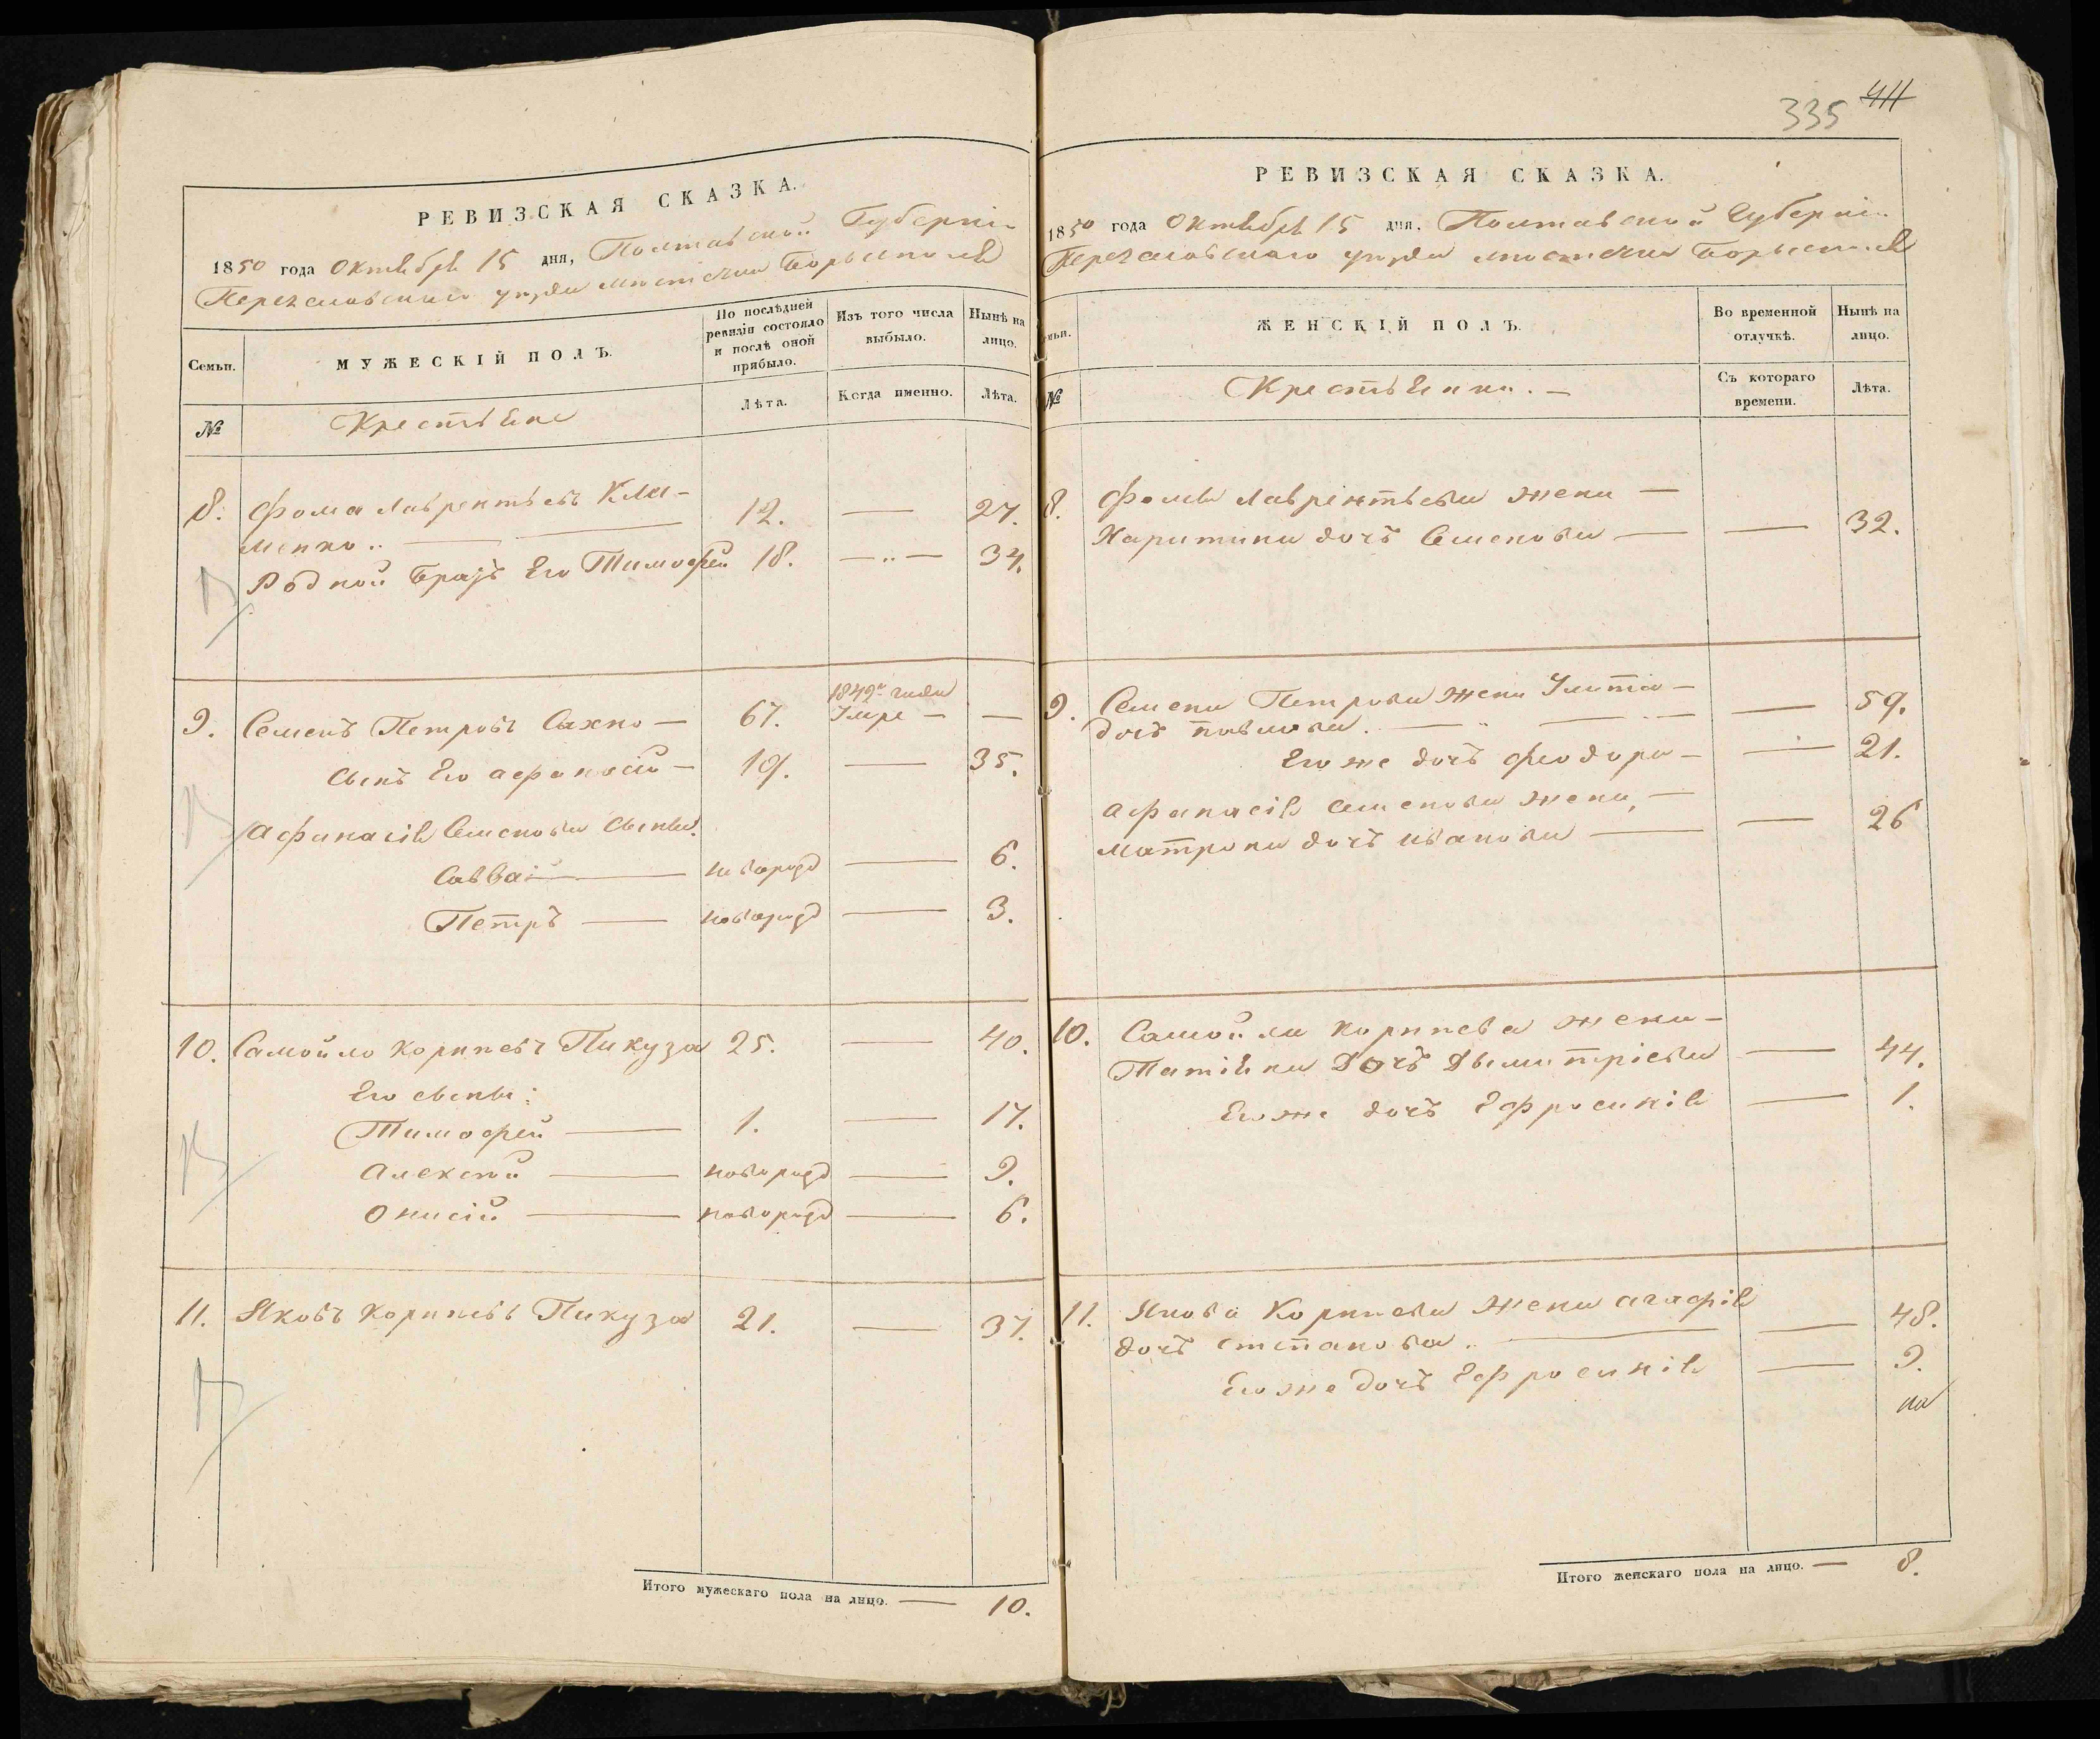 РЕВИЗСКАЯ СКАЗКА.
1850 года Октября 15 дня, Полтавской Губерніи
Переяславскаго уезда местечка Борысполя
Семьи.
МУЖЕСКІЙ ПОЛЪ.
По послѣдней ревизіи состояло и послѣ оной прибыло.
Изъ того числа выбыло.
Нынѣ на лицо.
№
Крестьяне
Лѣта.
Когда именно.
Лѣта.
8. Фома Лаврентьевъ Кли-
менко .. — 12. — 27.
Родной Братъ Его Тимофей 18. — 34.
9. Семенъ Петровъ Сахно — 67. 1849го года Умре — —
сынъ Его афанасій — 19. — 35.
Афанасія Семенова сыны.
Савва — новорозд — 6.
Петръ — новорозд — 3.
10. Самойло Корниевъ Пикуза 25. — 40.
Его сыны:
Тимофей — 1. — 17.
Алексей — новорозд — 9.
Онисій — новорозд — 6.
11. Яковъ Корниевъ Пикуза 21. — 37.
Итого мужескаго пола на лицо. — 10.
335 411
РЕВИЗСКАЯ СКАЗКА.
1850 года Октября 15 дня, Полтавской Губерніи
Переяславскаго уезда местечка Борысполя
Семьи.
ЖЕНСКІЙ ПОЛЪ.
Во временной отлучкѣ.
Нынѣ на лицо.
№
Крестьянки. —
Съ котораго времени.
Лѣта.
8. Фомы Лаврентьева жена —
Харитина дочь Семенова — — 32.
9. Семена Петрова жена Улита —
дочь павлова. — — 59.
Его же дочь феодора — — 21.
Афанасія Семенова жена, —
матрона дочь иванова — — 26
10. Самойла Корниева жена —
Татіяна Дочь Дымитріева — 44.
Его же дочь Ефросинія — 1.
11. Якова Корниева жена агафія
дочь степанова .. — — 48.
Его же дочь Ефросинія — 9.
Итого женскаго пола на лицо. — 8.